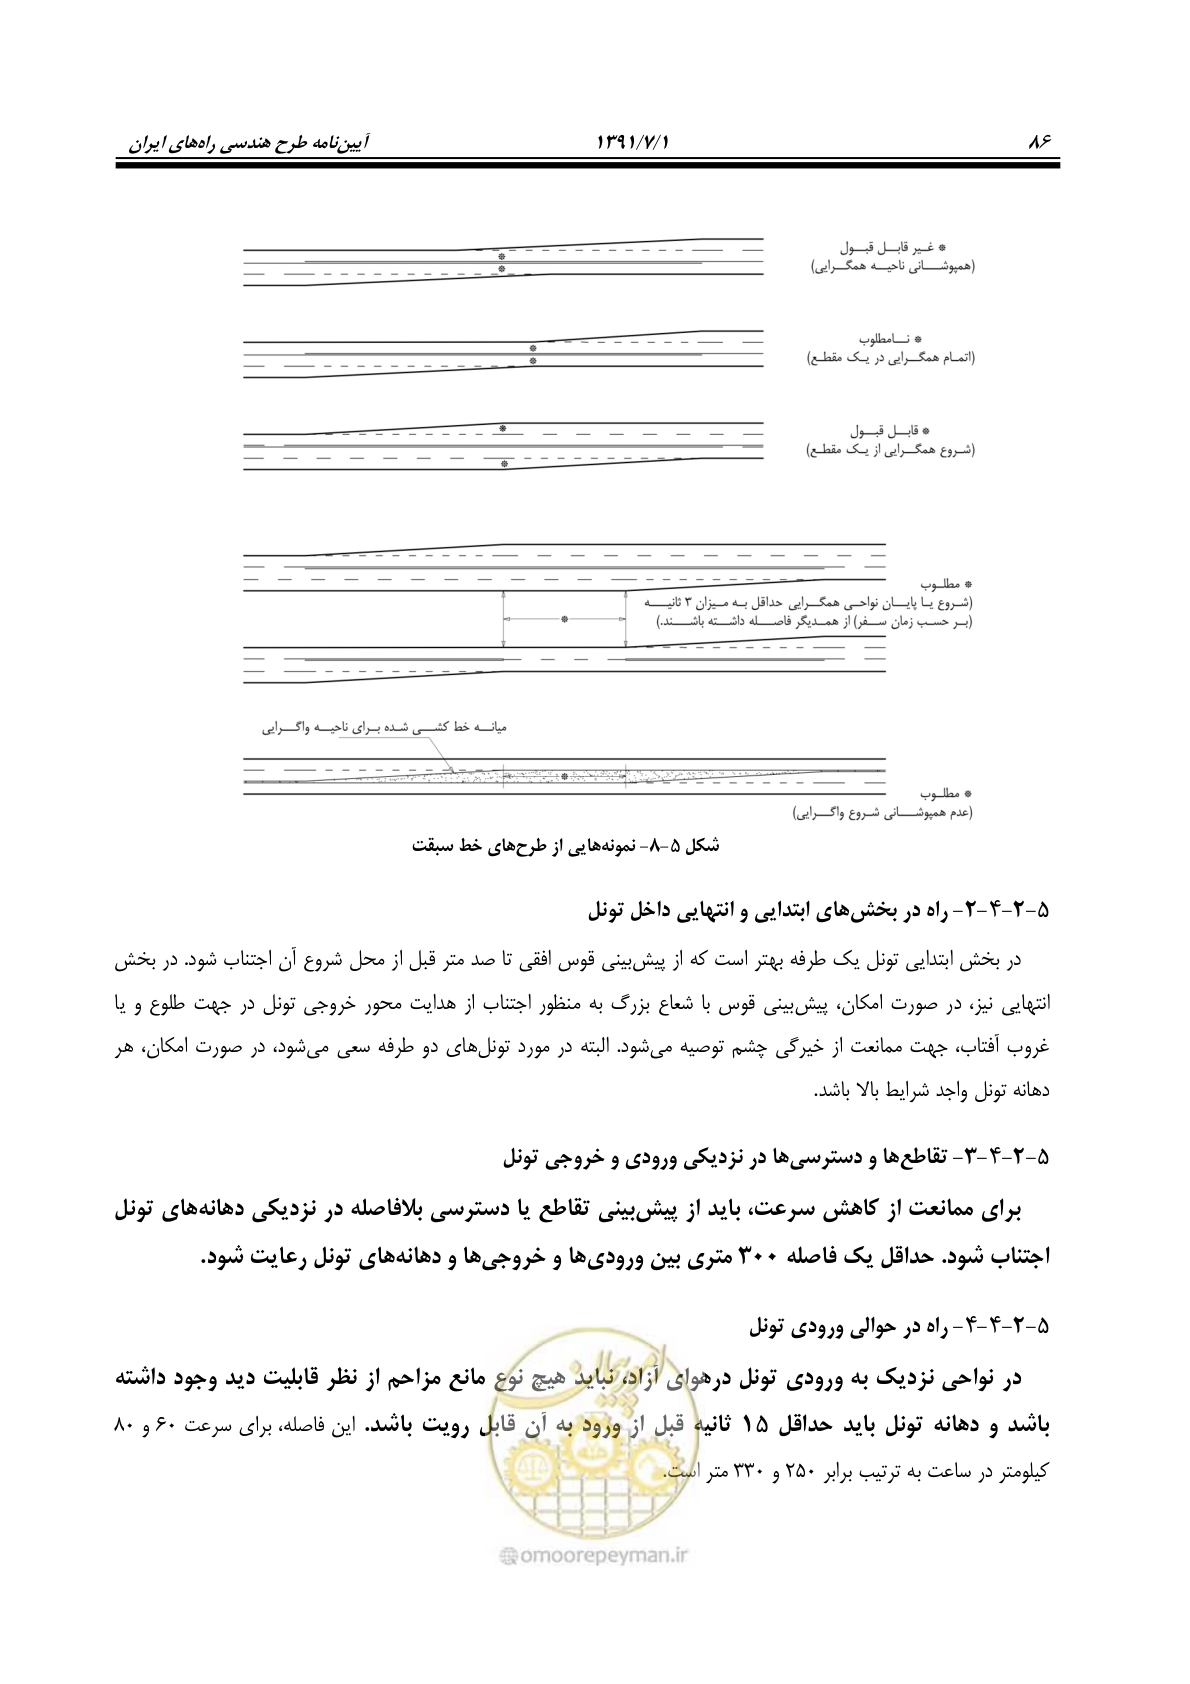 ۸۶ ۱۳۹۱/۷/۱ آیین‌نامه طرح هندسی راه‌های ایران
* غیر قابل قبول
(همپوشانی ناحیه همگرایی)
* نامطلوب
(اتمام همگرایی در یک مقطع)
* قابل قبول
(شروع همگرایی از یک مقطع)
* مطلوب
(شروع یا پایان نواحی همگرایی حداقل به میزان ۳ ثانیه
(بر حسب زمان سفر) از همدیگر فاصله داشته باشند.)
میانه خط کشی شده برای ناحیه واگرایی
* مطلوب
(عدم همپوشانی شروع واگرایی)
شکل ۵-۸- نمونه‌هایی از طرح‌های خط سبقت
۵-۲-۴-۲- راه در بخش‌های ابتدایی و انتهایی داخل تونل
در بخش ابتدایی تونل یک طرفه بهتر است که از پیش‌بینی قوس افقی تا صد متر قبل از محل شروع آن اجتناب شود. در بخش
انتهایی نیز، در صورت امکان، پیش‌بینی قوس با شعاع بزرگ به منظور اجتناب از هدایت محور خروجی تونل در جهت طلوع و یا
غروب آفتاب، جهت ممانعت از خیرگی چشم توصیه می‌شود. البته در مورد تونل‌های دو طرفه سعی می‌شود، در صورت امکان، هر
دهانه تونل واجد شرایط بالا باشد.
۵-۲-۴-۳- تقاطع‌ها و دسترسی‌ها در نزدیکی ورودی و خروجی تونل
برای ممانعت از کاهش سرعت، باید از پیش‌بینی تقاطع یا دسترسی بلافاصله در نزدیکی دهانه‌های تونل
اجتناب شود. حداقل یک فاصله ۳۰۰ متری بین ورودی‌ها و خروجی‌ها و دهانه‌های تونل رعایت شود.
۵-۲-۴-۴- راه در حوالی ورودی تونل
در نواحی نزدیک به ورودی تونل درهوای آزاد، نباید هیچ نوع مانع مزاحم از نظر قابلیت دید وجود داشته
باشد و دهانه تونل باید حداقل ۱۵ ثانیه قبل از ورود به آن قابل رویت باشد. این فاصله، برای سرعت ۶۰ و ۸۰
کیلومتر در ساعت به ترتیب برابر ۲۵۰ و ۳۳۰ متر است.
امور پیمان
@omoorepeyman.ir